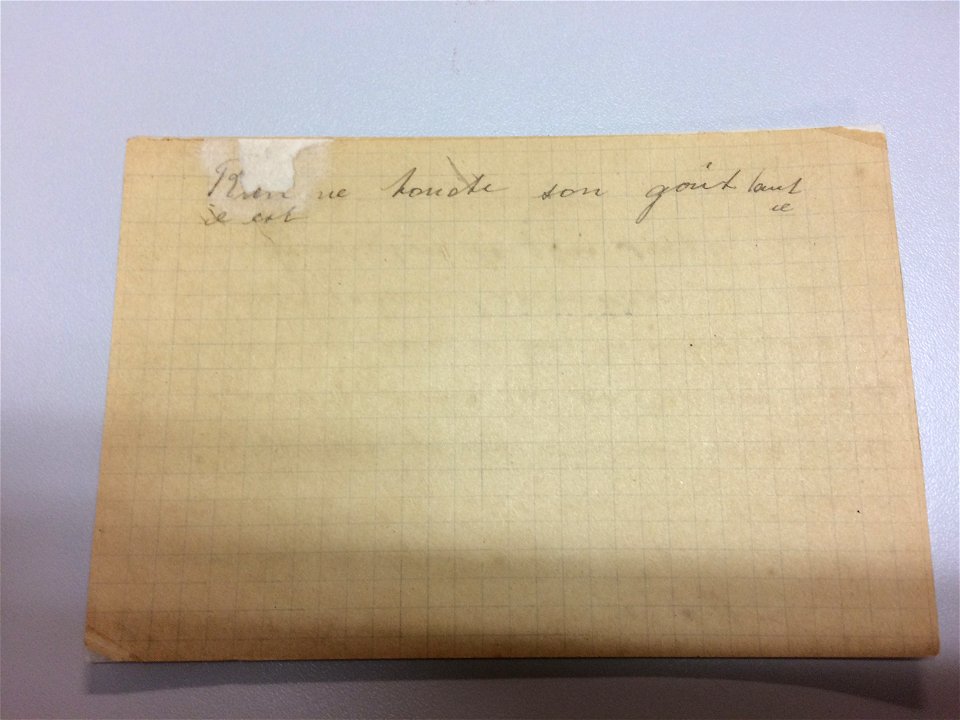 Rien ne touche son goût tant
il est